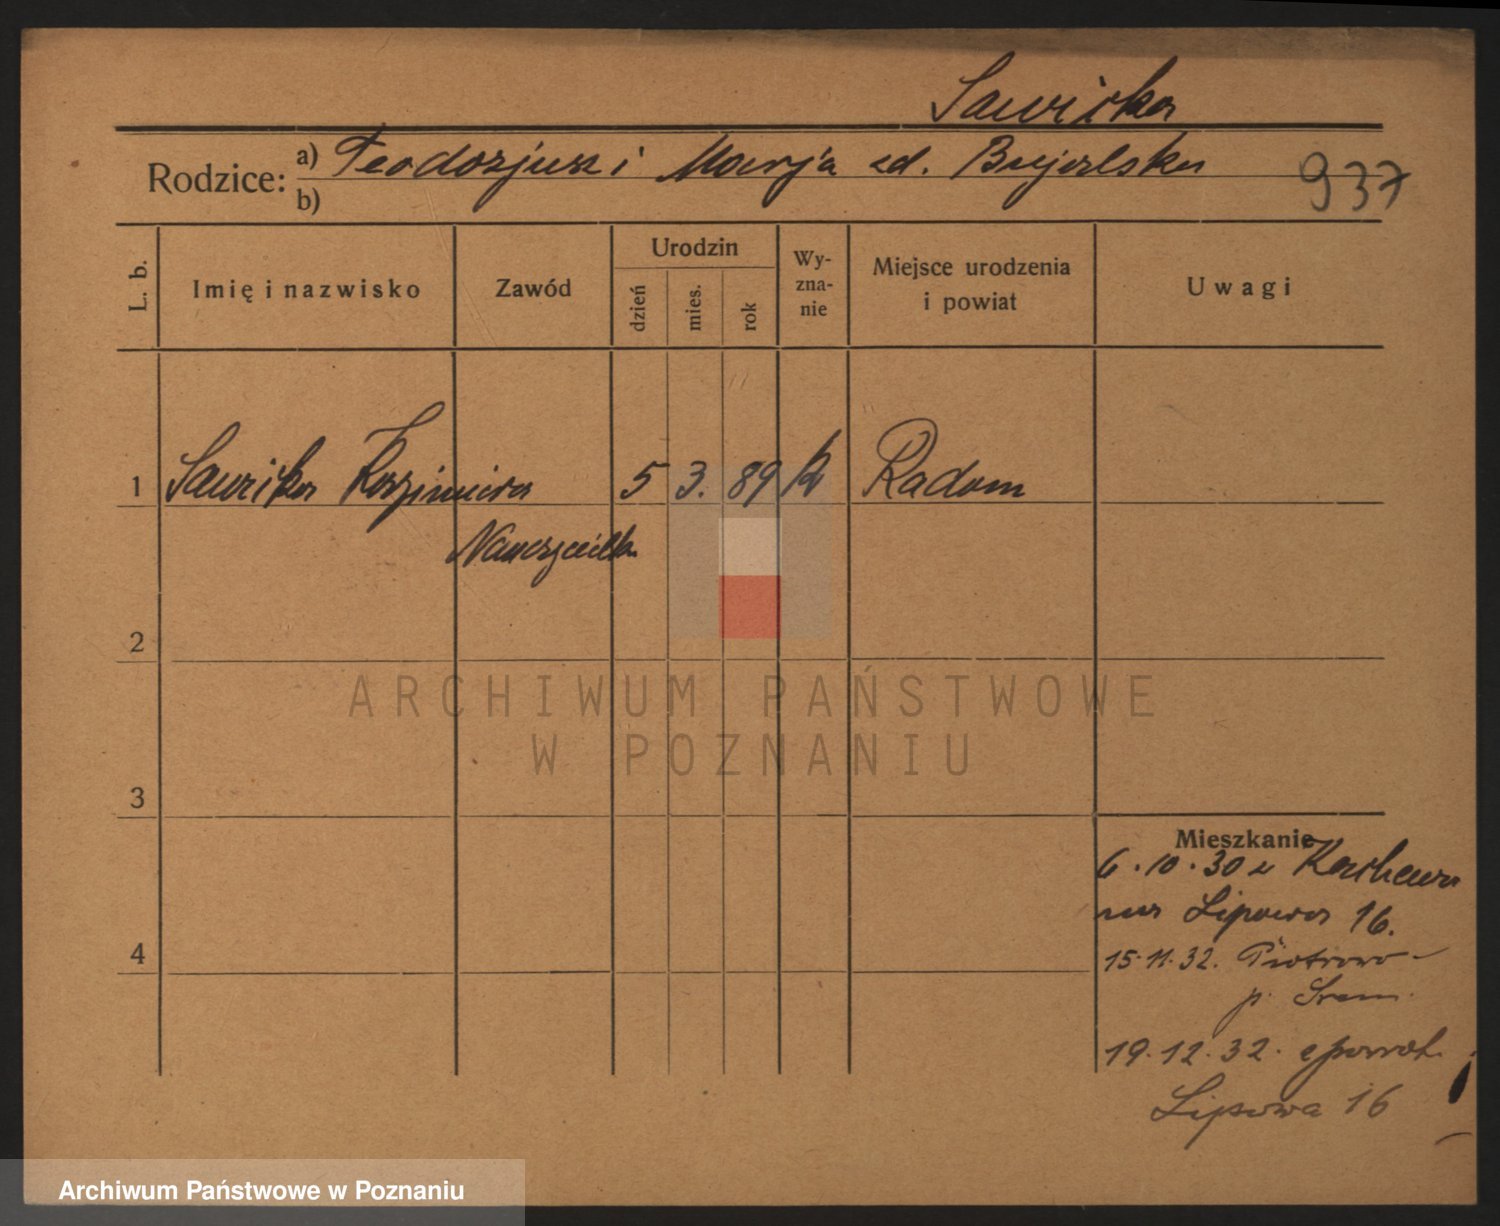 Sawicka
Rodzice: a) Teodozjusz i Marja zd. Bujalska
b)
937
L. b. Imię i nazwisko Zawód Urodzin dzień mies. rok Wy-zna-nie Miejsce urodzenia i powiat Uwagi
1 Sawicka Kazimiera 5 3. 89 k Radom
Nauczycielka
2
ARCHIWUM PAŃSTWOWE
W POZNANIU
3
Mieszkanie
6.10.30 z
na Lipowa 16.
4
15.11.32. Piotrowo
p. Śrem.
19.12.32. z powrot.
Lipowa 16
Archiwum Państwowe w Poznaniu